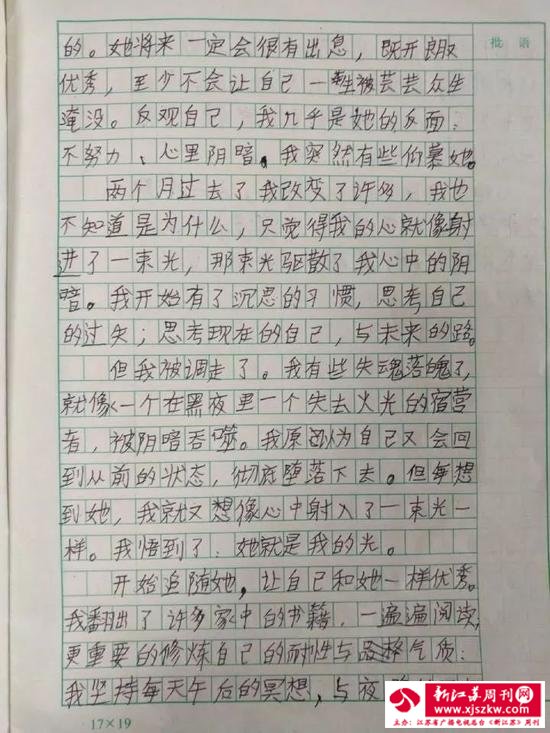 批语
的。她将来一定会很有出息，既开朗又
优秀，至少不会让自己一生被芸芸众生
淹没。反观自己，我几乎是她的反面：
不努力、心里阴暗。我突然有些仰慕她。
两个月过去了我改变了许多，我也
不知道是为什么，只觉得我的心就像射
进了一束光，那束光驱散了我心中的阴
暗。我开始有了沉思的习惯，思考自己
的过失；思考现在的自己，与未来的路。
但我被调走了。我有些失魂落魄了，
就像一个在黑夜里一个失去火光的宿营
者，被阴暗吞噬。我原以为自己又会回
到从前的状态，彻底堕落下去。但每想
到她，我就又想像心中射入了一束光一
样。我悟到了：她就是我的光。
开始追随她，让自己和她一样优秀。
我翻出了许多家中的书籍，一遍遍阅读，
更重要的修炼自己的耐性与品格气质：
我坚持每天午后的冥想，与夜
17×19
新江苏周刊网
www.xjszkw.com
主办：江苏省广播电视总台《新江苏》周刊